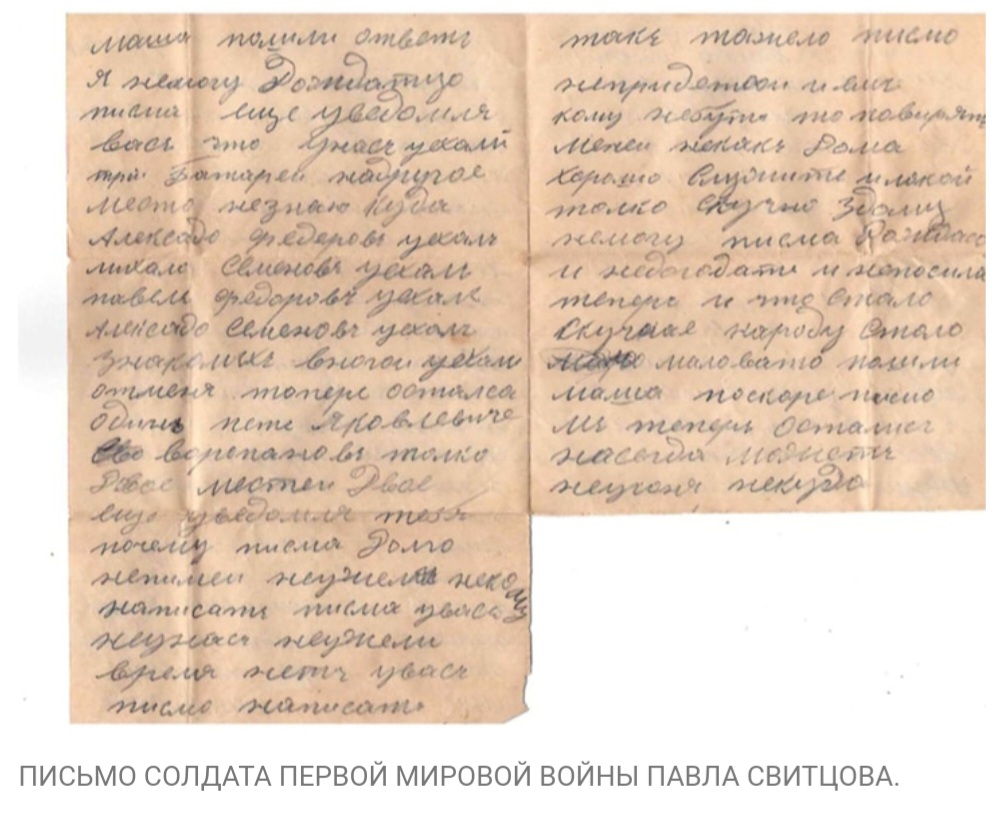 маша пошли ответъ
я немогу Дождатцо
писма еще уведомля
васъ что унасъ уехали
три Батареи надругое
место незнаю куда
Алексадо федоровъ уехалъ
михало Семеновъ уехалъ
павелъ федоровъ уехалъ
Алексадо Семеновъ уехалъ
знакомыхъ вногои уехали
отменя топере осталса
одинъ Яковлевиче
воропановъ толко
Двое Двое
еще уведомля тебя
почему писма Долго
неужели
написать писма увасъ
неунасъ неужели
время нетъ увасъ
писмо написать
такъ тажело писмо
непридетсои иелъ
кому небуть то
менеи некакъ Дома
хорошо Служите
толко скучно здому
немогу писма
и недогодати и непосила
теперъ и что Стало
Скучная народу Стало
маловато пошли
маша поскоре писмо
мъ теперъ осталисъ
насегда можетъ
неугоня некудо
ПИСЬМО СОЛДАТА ПЕРВОЙ МИРОВОЙ ВОЙНЫ ПАВЛА СВИТЦОВА.